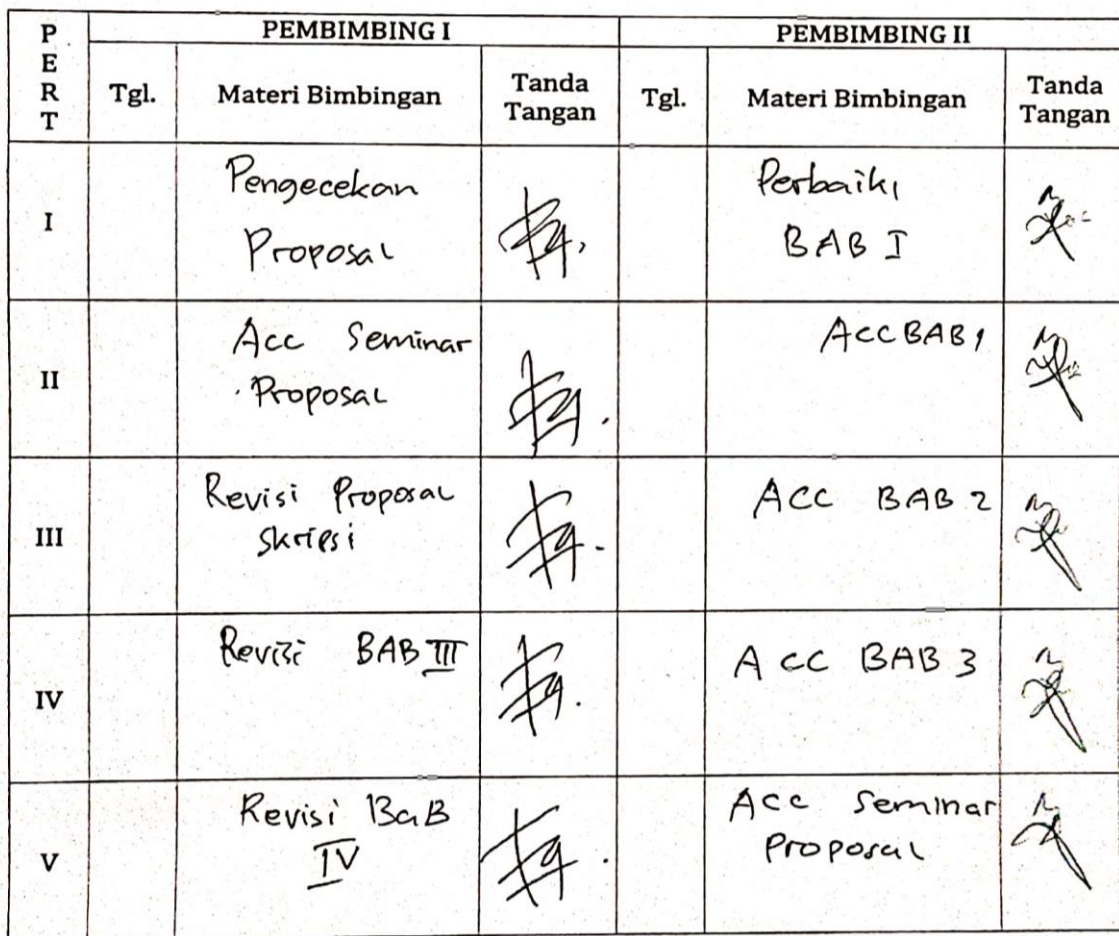 PERT
PEMBIMBING I
PEMBIMBING II
Tgl.
Materi Bimbingan
Tanda
Tangan
Tgl.
Materi Bimbingan
Tanda
Tangan
I
Pengecekan
Proposal
Perbaiki
BAB I
II
Acc Seminar
Proposal
ACC BAB 1
III
Revisi Proposal
Skripsi
ACC BAB 2
IV
Revisi BAB III
ACC BAB 3
V
Revisi BaB
IV
Acc Seminar
Proposal